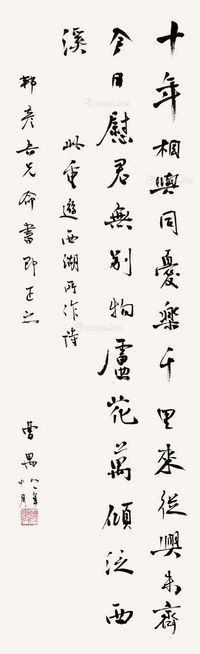 十年相與同憂樂千里來從興未齊
今日慰君無別物蘆花萬頃泛西
溪
此重遊西湖所作詩
邦彦吾兄命書即正之
曹禺
八一年
十月